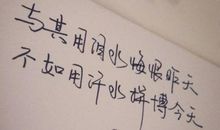 与其用泪水悔恨昨天
不如用汗水拼搏今天